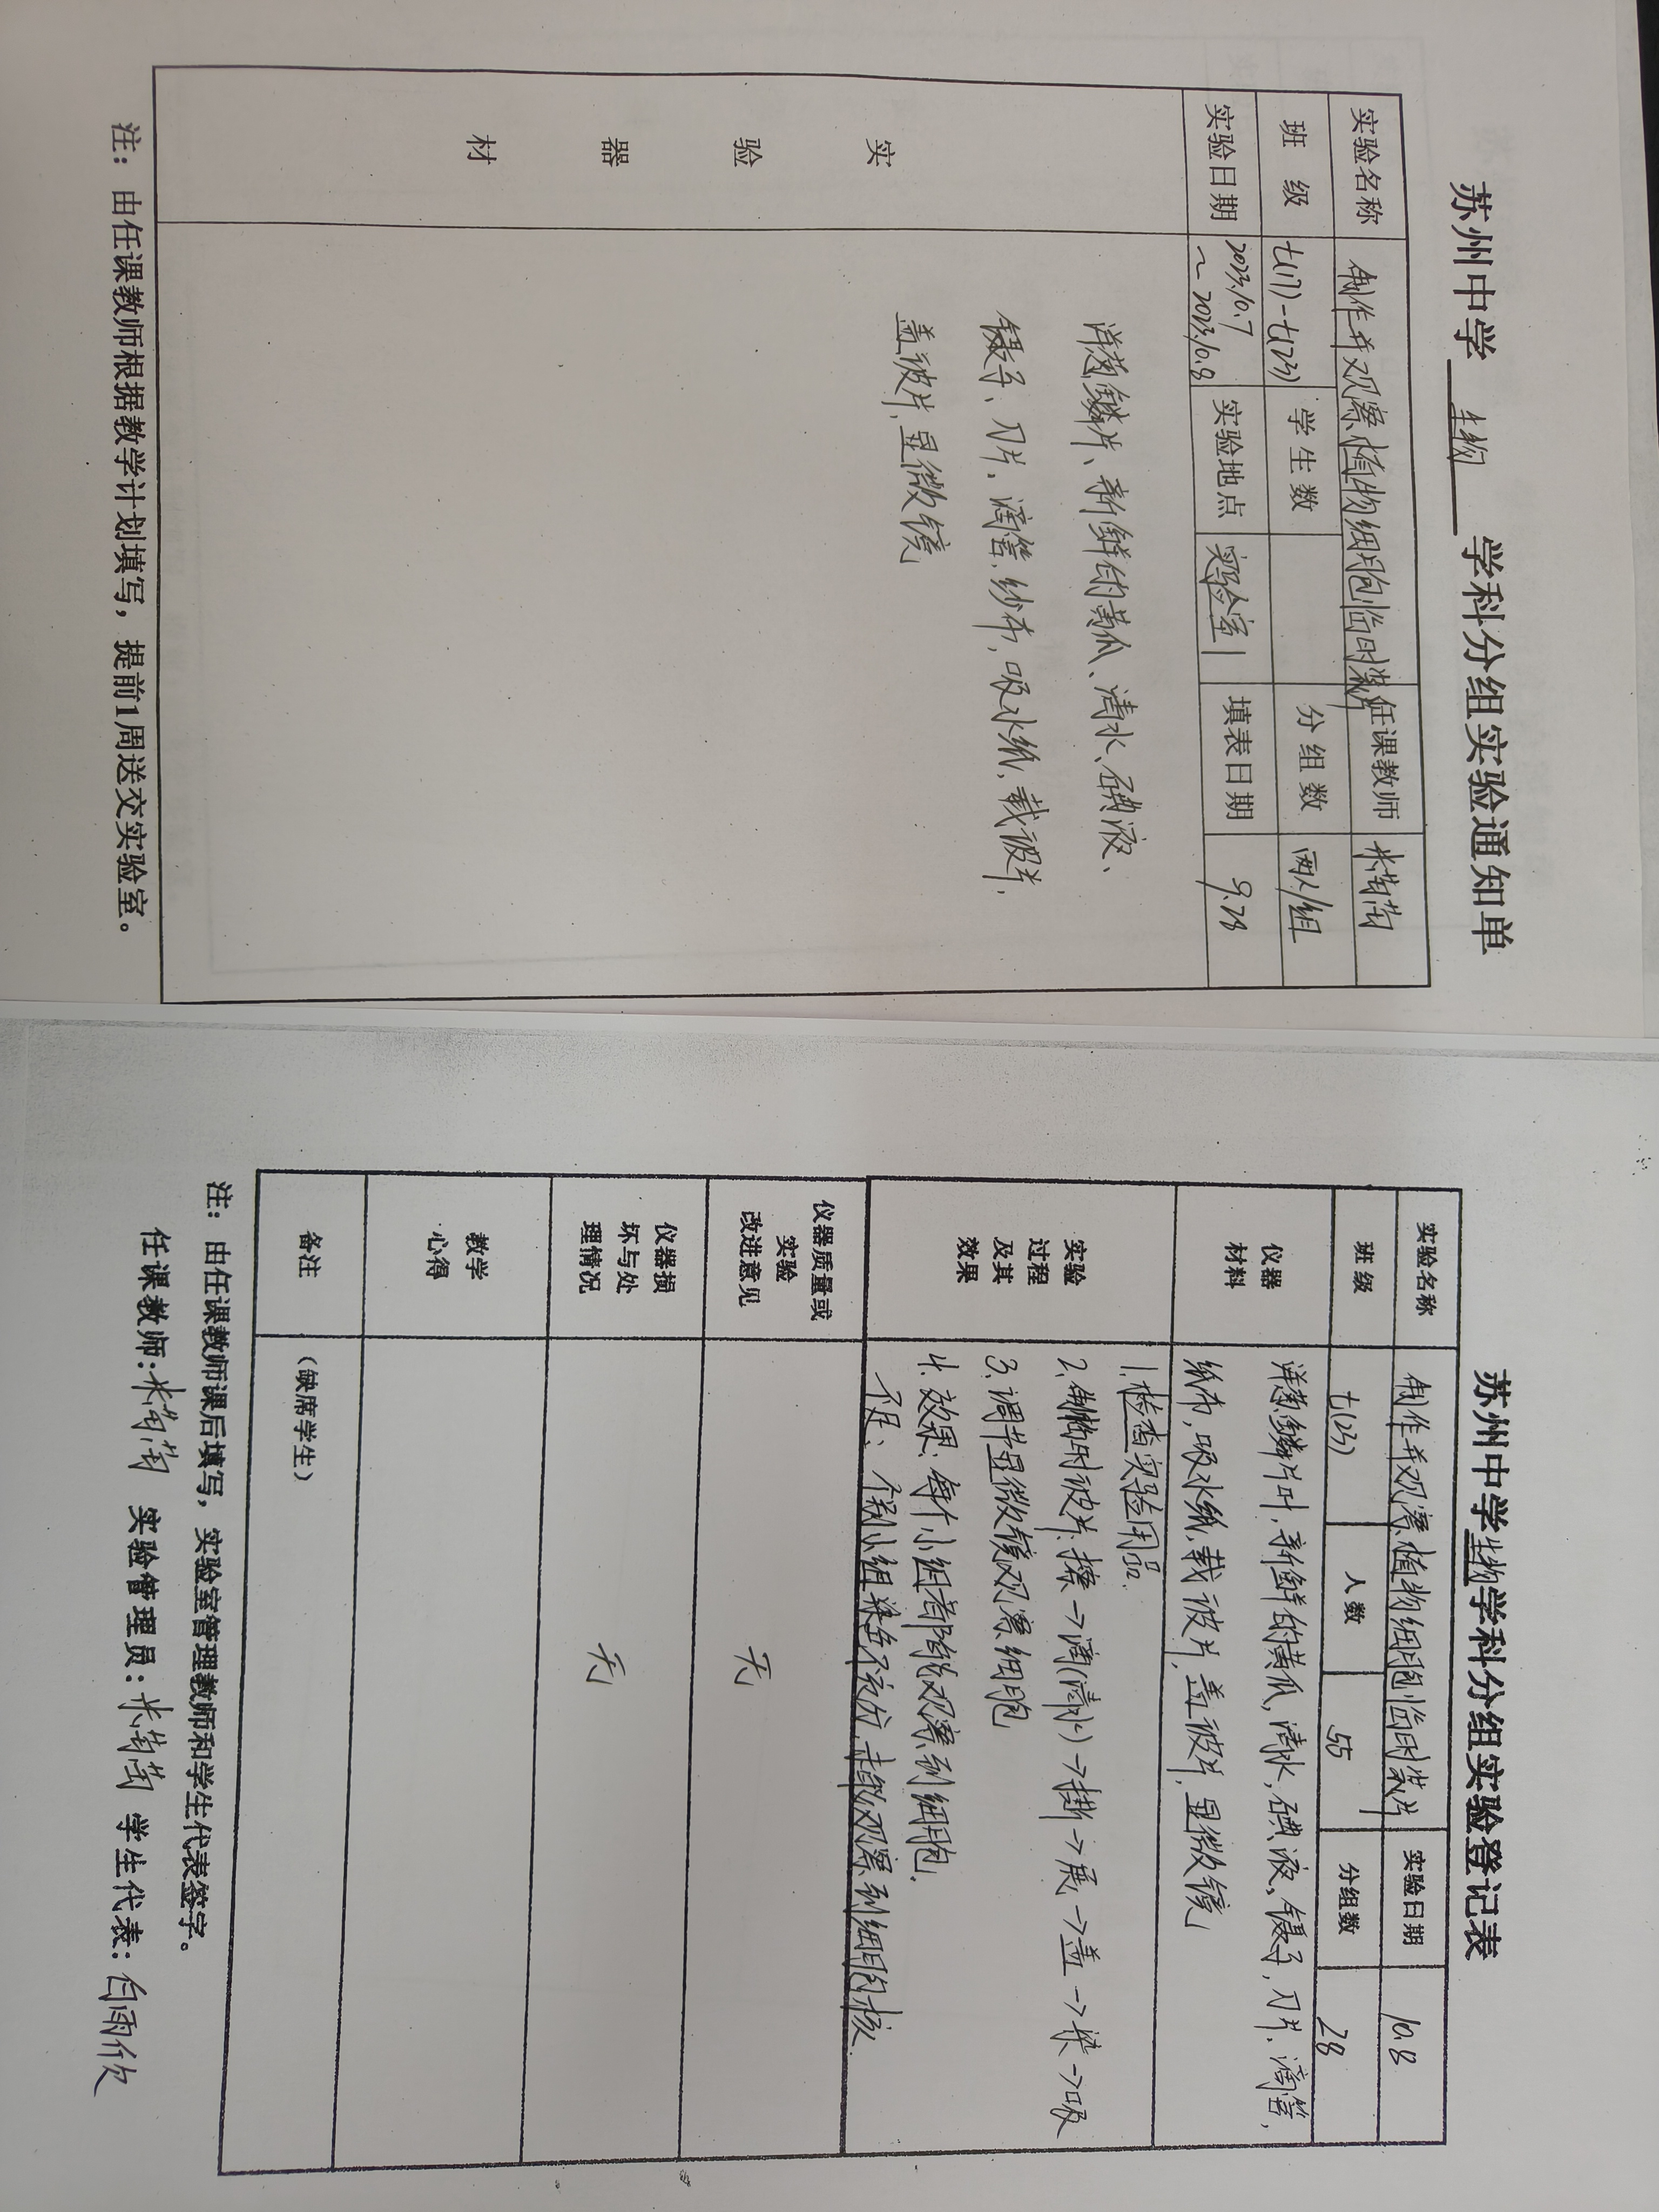 苏州中学 生物 学科分组实验通知单
实验名称 制作并观察植物细胞临时装片 任课教师 米菊菊
班 级 七(17)-七(23) 学生数 分组数 两人/组
实验日期 2023.10.7 ~ 2023.10.8 实验地点 实验室1 填表日期 9.28
实 验 器 材
洋葱鳞片、新鲜的黄瓜、清水、碘液、
镊子、刀片、滴管、纱布、吸水纸、载玻片、
盖玻片、显微镜
注：由任课教师根据教学计划填写，提前1周送交实验室。
苏州中学生物学科分组实验登记表
实验名称 制作并观察植物细胞临时装片 实验日期 10.8
班 级 七(23) 人 数 55 分组数 28
仪器材料
洋葱鳞片叶，新鲜的黄瓜，清水，碘液，镊子，刀片，滴管，
纱布，吸水纸，载玻片，盖玻片，显微镜
实验过程及其效果
1.检查实验用品.
2.制临时玻片：擦→滴(清水)→撕→展→盖→染→吸
3.调节显微镜观察细胞
4.效果：每个小组都能观察到细胞.
不足：个别小组染色不充分，未能观察到细胞核.
仪器质量或实验改进意见 无
仪器损坏与处理情况 无
教学心得
备注 （缺席学生）
注：由任课教师课后填写，实验室管理教师和学生代表签字。
任课教师：米菊菊 实验管理员：米菊菊 学生代表：白雨欣